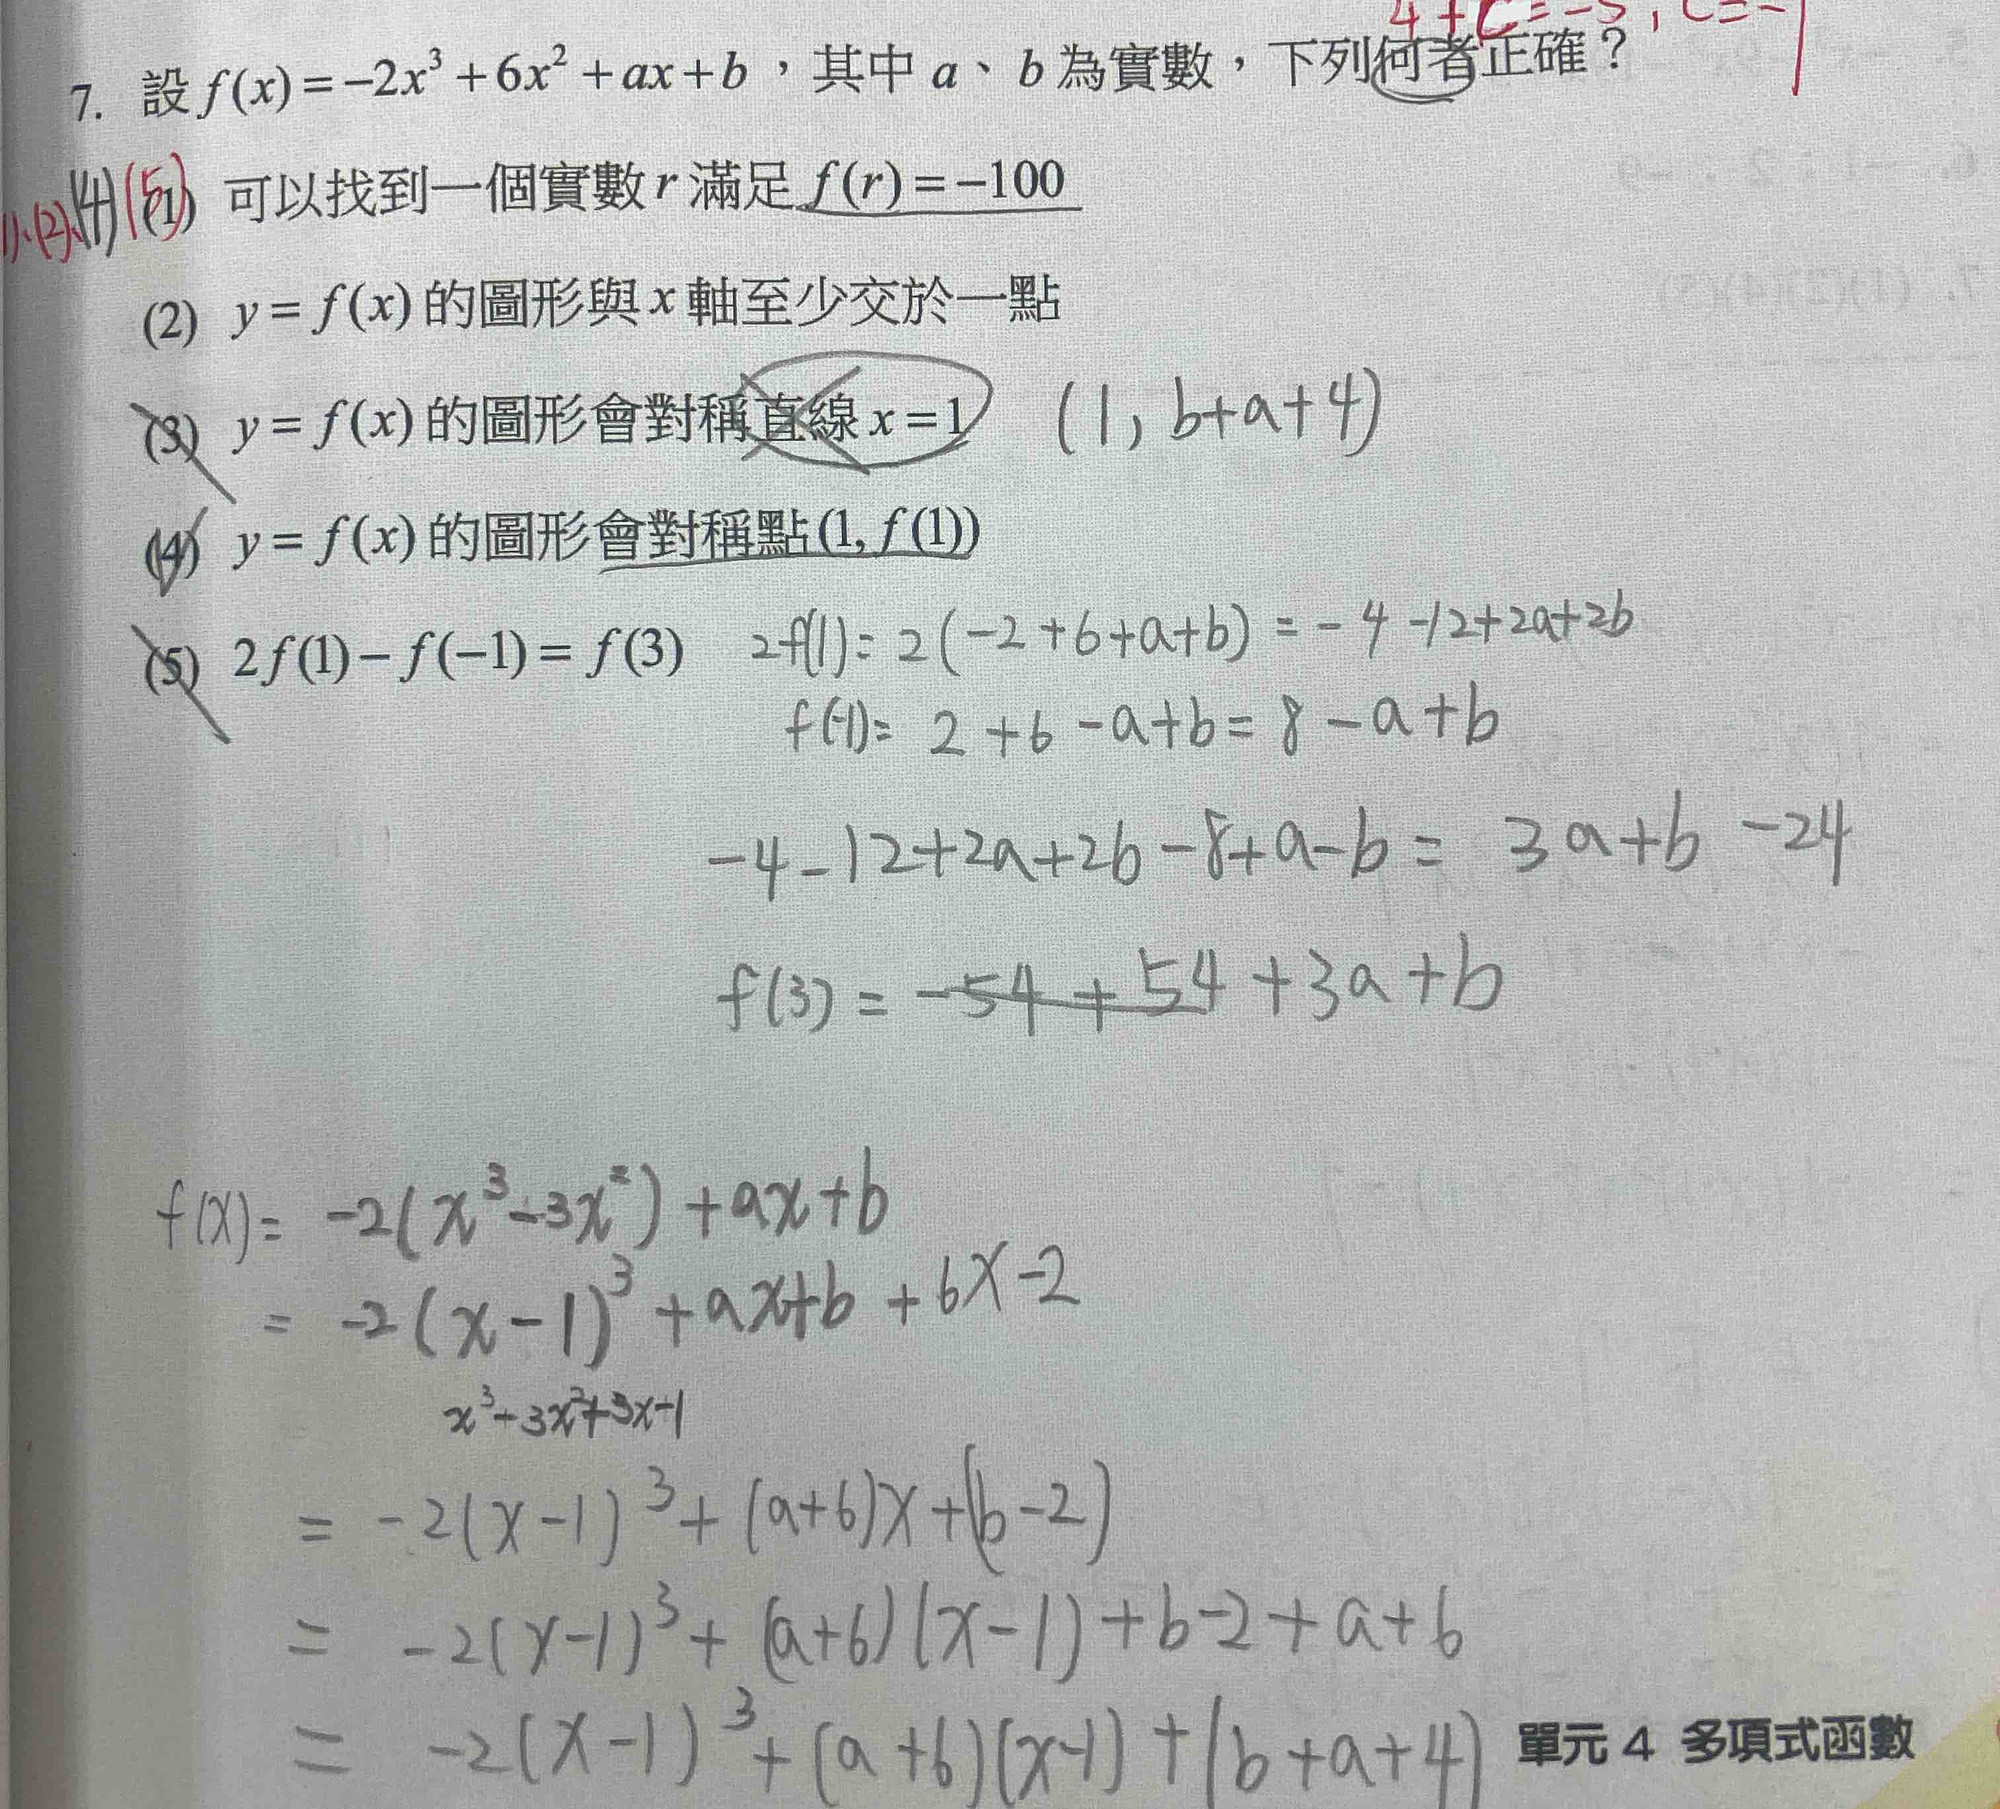 4+C=-5, C=-1
7. 設 f(x)=-2x³+6x²+ax+b，其中 a、b 為實數，下列何者正確？
1)、(2)、(4)(5)
(1) 可以找到一個實數 r 滿足 f(r)=-100
(2) y=f(x) 的圖形與 x 軸至少交於一點
(3) y=f(x) 的圖形會對稱直線 x=1 (1, b+a+4)
(4) y=f(x) 的圖形會對稱點 (1, f(1))
(5) 2f(1)-f(-1)=f(3) 2f(1)=2(-2+6+a+b)=-4-12+2a+2b
f(-1)=2+6-a+b=8-a+b
-4-12+2a+2b-8+a-b=3a+b-24
f(3)=-54+54+3a+b
f(x)=-2(x³-3x²)+ax+b
=-2(x-1)³+ax+b+6x-2
x³-3x²+3x-1
=-2(x-1)³+(a+6)x+(b-2)
=-2(x-1)³+(a+6)(x-1)+b-2+a+6
=-2(x-1)³+(a+6)(x-1)+(b+a+4)
單元 4 多項式函數